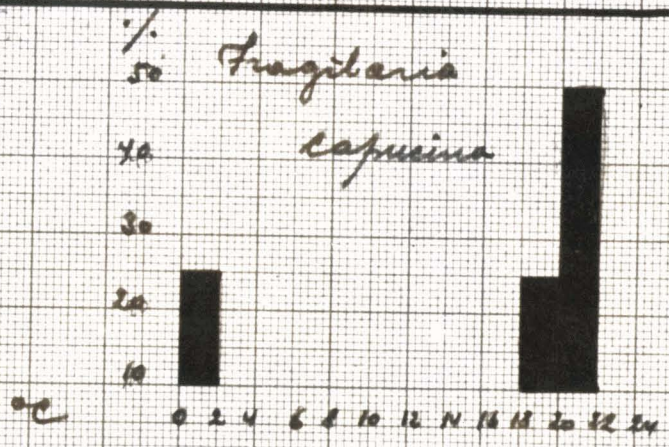 %
50 Fragilaria
40 capucina
30
20
10
°C 0 2 4 6 8 10 12 14 16 18 20 22 24